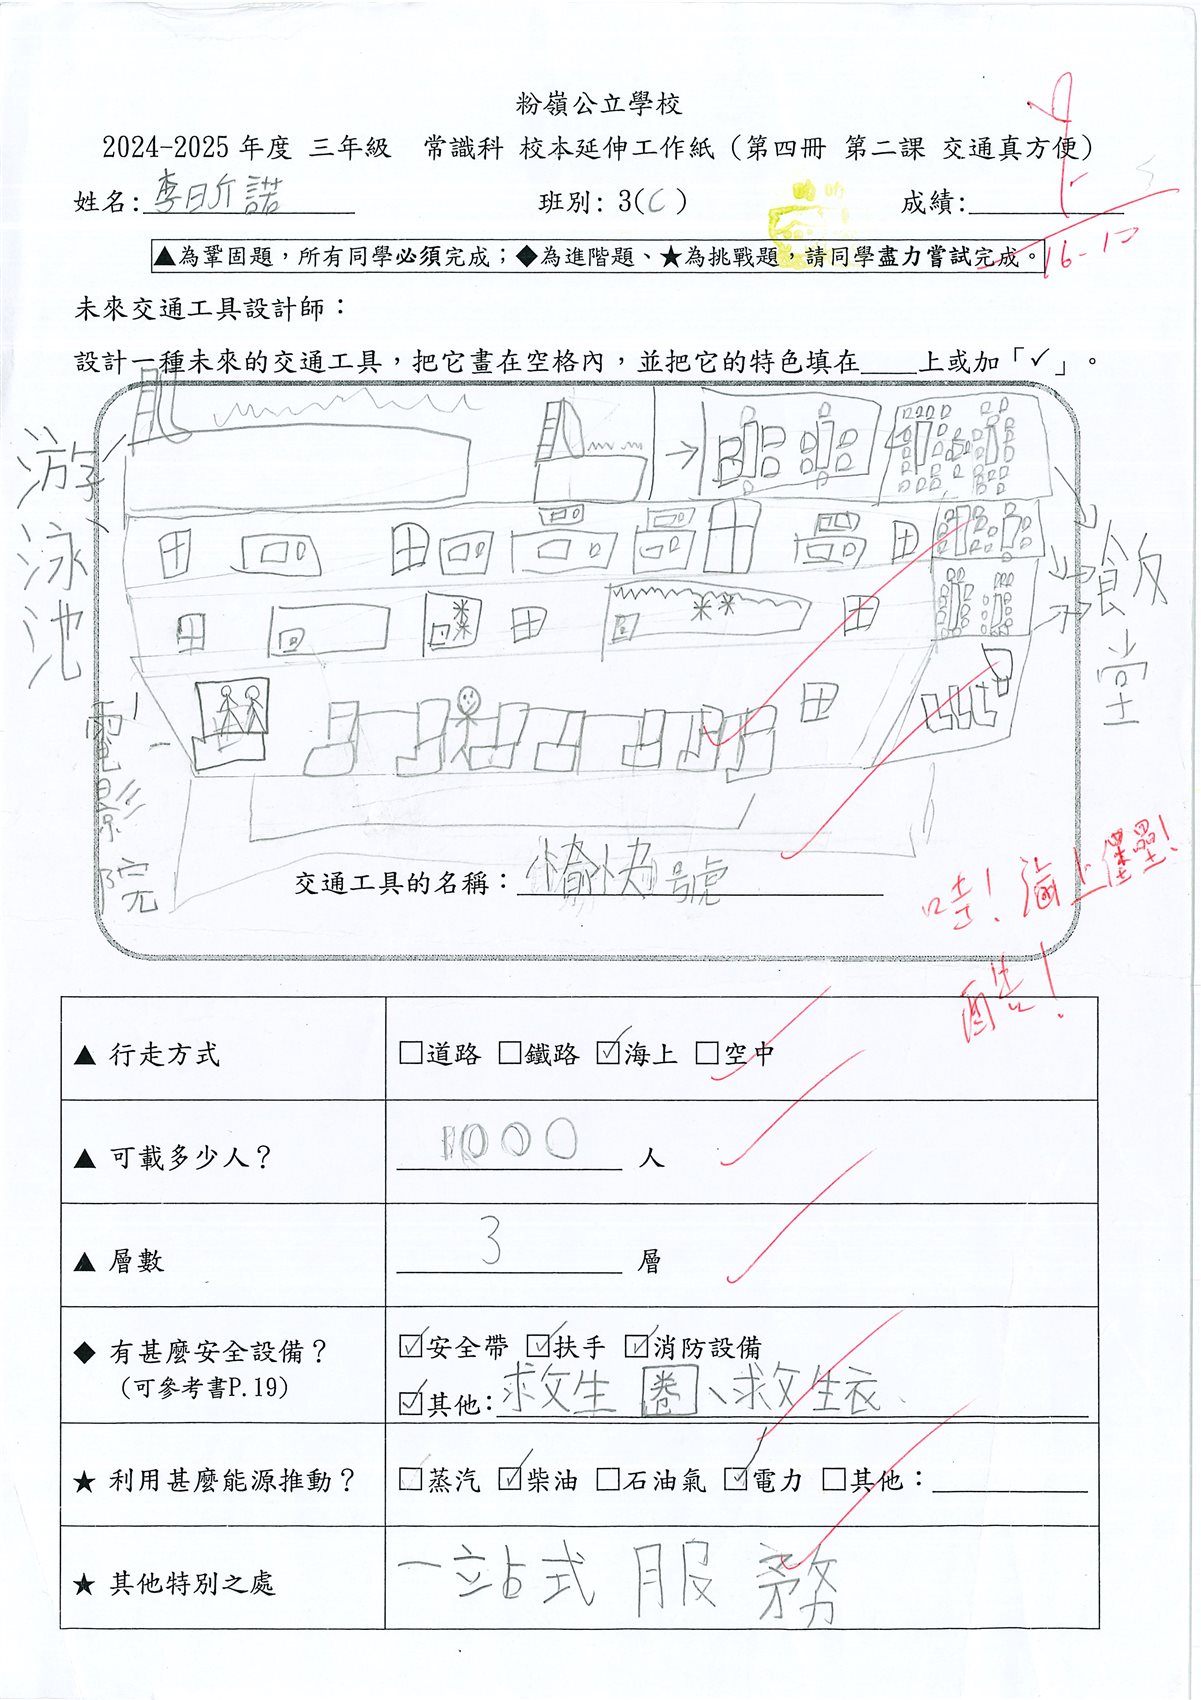 粉嶺公立學校
2024-2025 年度 三年級 常識科 校本延伸工作紙（第四冊 第二課 交通真方便）
姓名:李昍諾 班別: 3(C) 成績:
16-10
▲為鞏固題，所有同學必須完成；◆為進階題、★為挑戰題，請同學盡力嘗試完成。
未來交通工具設計師：
設計一種未來的交通工具，把它畫在空格內，並把它的特色填在____上或加「✓」。
游泳池
飯堂
電影院
交通工具的名稱：愉快號
哇！海上堡壘！
酷！
▲ 行走方式 □道路 □鐵路 ☑海上 □空中
▲ 可載多少人？ 1000 人
▲ 層數 3 層
◆ 有甚麼安全設備？ ☑安全帶 ☑扶手 ☑消防設備
(可參考書P.19) ☑其他:求生圈、求生衣
★ 利用甚麼能源推動？ □蒸汽 ☑柴油 □石油氣 ☑電力 □其他：
★ 其他特別之處 一站式服務